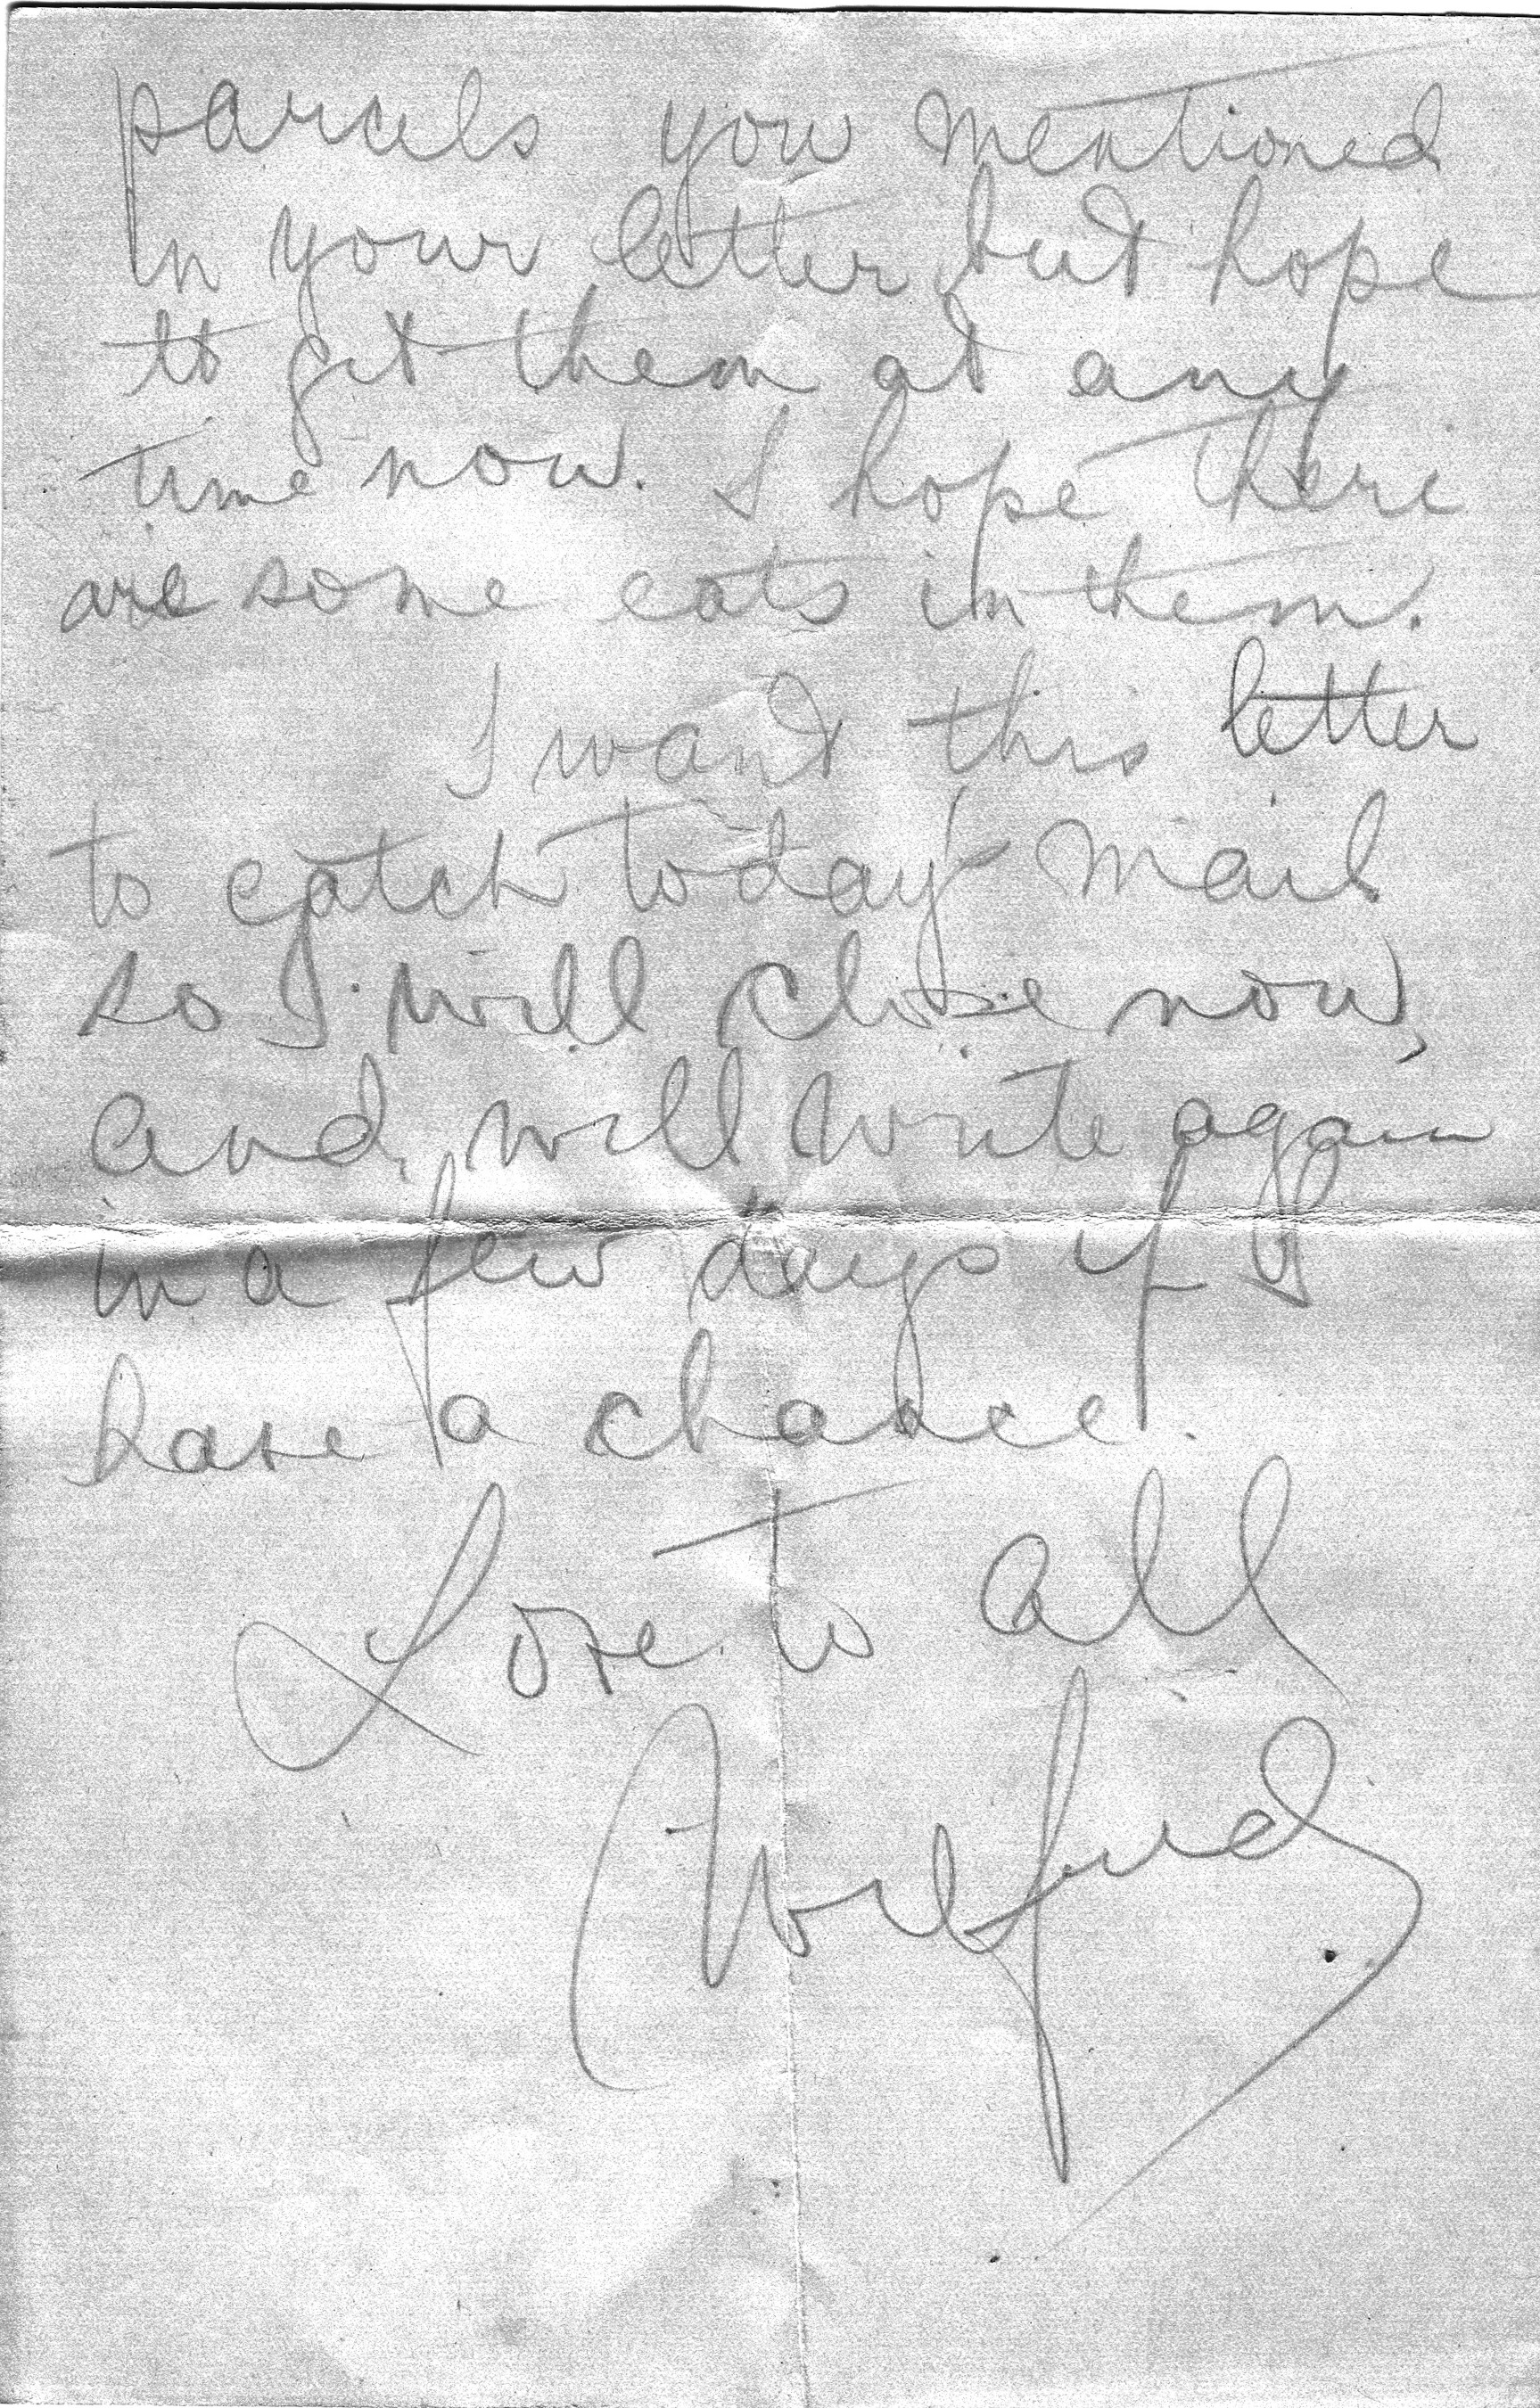 parcels you mentioned
in your letter but hope
to get them at any
time now. I hope there
are some eats in them.
I want this letter
to catch today's mail
so I will close now,
and will write again
in a few days if I
have a chance.
Love to all
Wilfrid